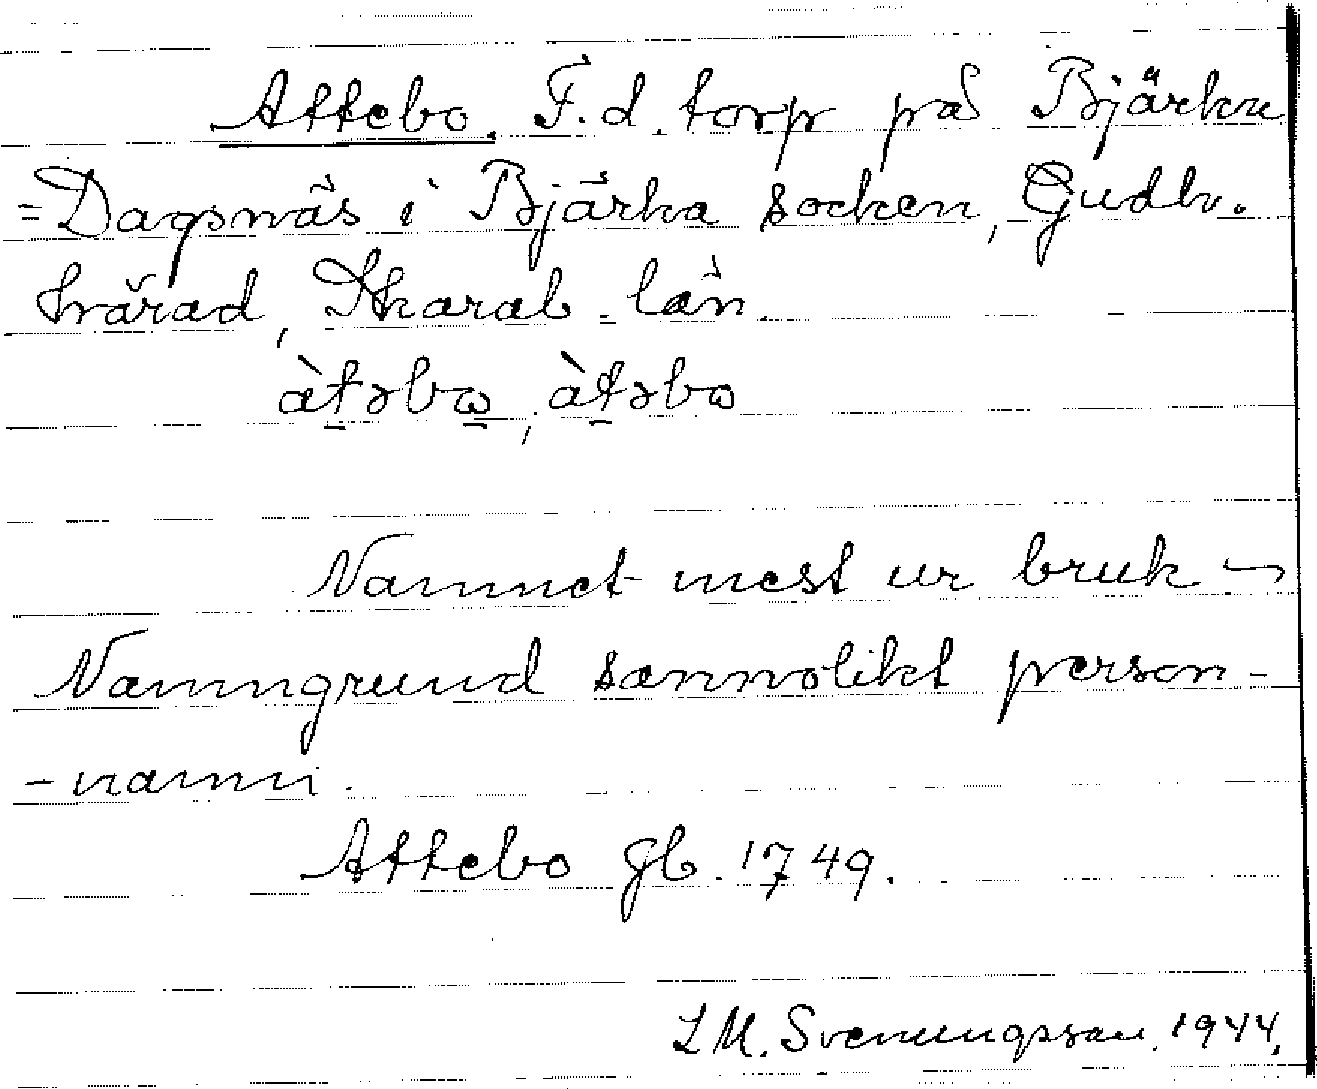 Attebo. F.d. torp på Bjärka
=Dagsnäs i Bjärka socken, Gudh.
härad, Skarab. län.
àtəbω, àtəbω
Namnet mest ur bruk ¬
Namngrund sannolikt person-
-namn.
Attebo Jb. 1749.
L M. Svenungsson. 1944.